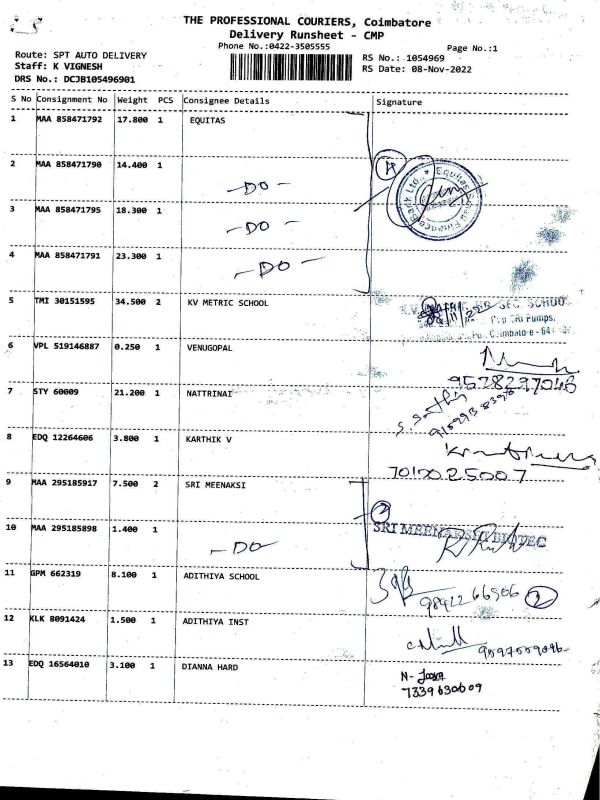 THE PROFESSIONAL COURIERS, Coimbatore
Delivery Runsheet - CMP
Phone No.:0422-3505555
Page No.:1
Route: SPT AUTO DELIVERY
Staff: K VIGNESH
DRS No.: DCJB105496901
RS No.: 1054969
RS Date: 08-Nov-2022
S No Consignment No Weight PCS Consignee Details Signature
1 MAA 858471792 17.800 1 EQUITAS
2 MAA 858471790 14.400 1 -DO-
3 MAA 858471795 18.300 1 -DO-
4 MAA 858471791 23.300 1 -DO-
5 TMI 30151595 34.500 2 KV METRIC SCHOOL
6 VPL 519146887 0.250 1 VENUGOPAL
9578297046
7 STY 60009 21.200 1 NATTRINAI
8 EDQ 12264606 3.800 1 KARTHIK V
7010025007
9 MAA 295185917 7.500 2 SRI MEENAKSI
2
SRI MEENAKSHI BIOTEC
10 MAA 295185898 1.400 1 -DO-
11 GPM 662319 8.100 1 ADITHIYA SCHOOL
9842266506 2
12 KLK 8091424 1.500 1 ADITHIYA INST
9597559096
13 EDQ 16564010 3.100 1 DIANNA HARD
7339630609